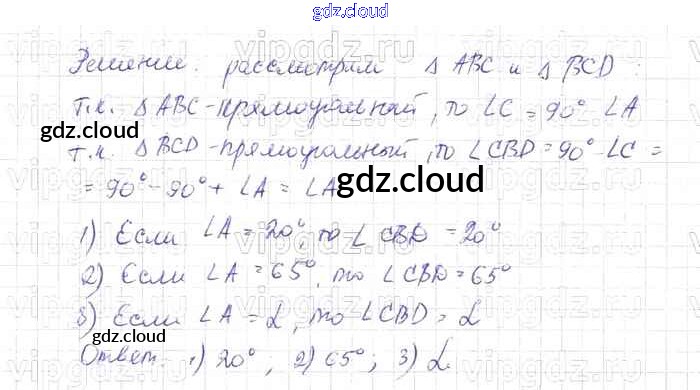 gdz.cloud
Решение: рассмотрим Δ ABC и Δ BCD :
т.к. Δ ABC - прямоугольный, то ∠C = 90° - ∠A
gdz.cloud
т.к. Δ BCD - прямоугольный, то ∠CBD = 90° - ∠C =
= 90° - 90° + ∠A = ∠A
gdz.cloud
1) Если ∠A = 20°, то ∠CBD = 20°
2) Если ∠A = 65°, то ∠CBD = 65°
3) Если ∠A = α, то ∠CBD = α
gdz.cloud
gdz.cloud
Ответ: 1) 20°; 2) 65°; 3) α.